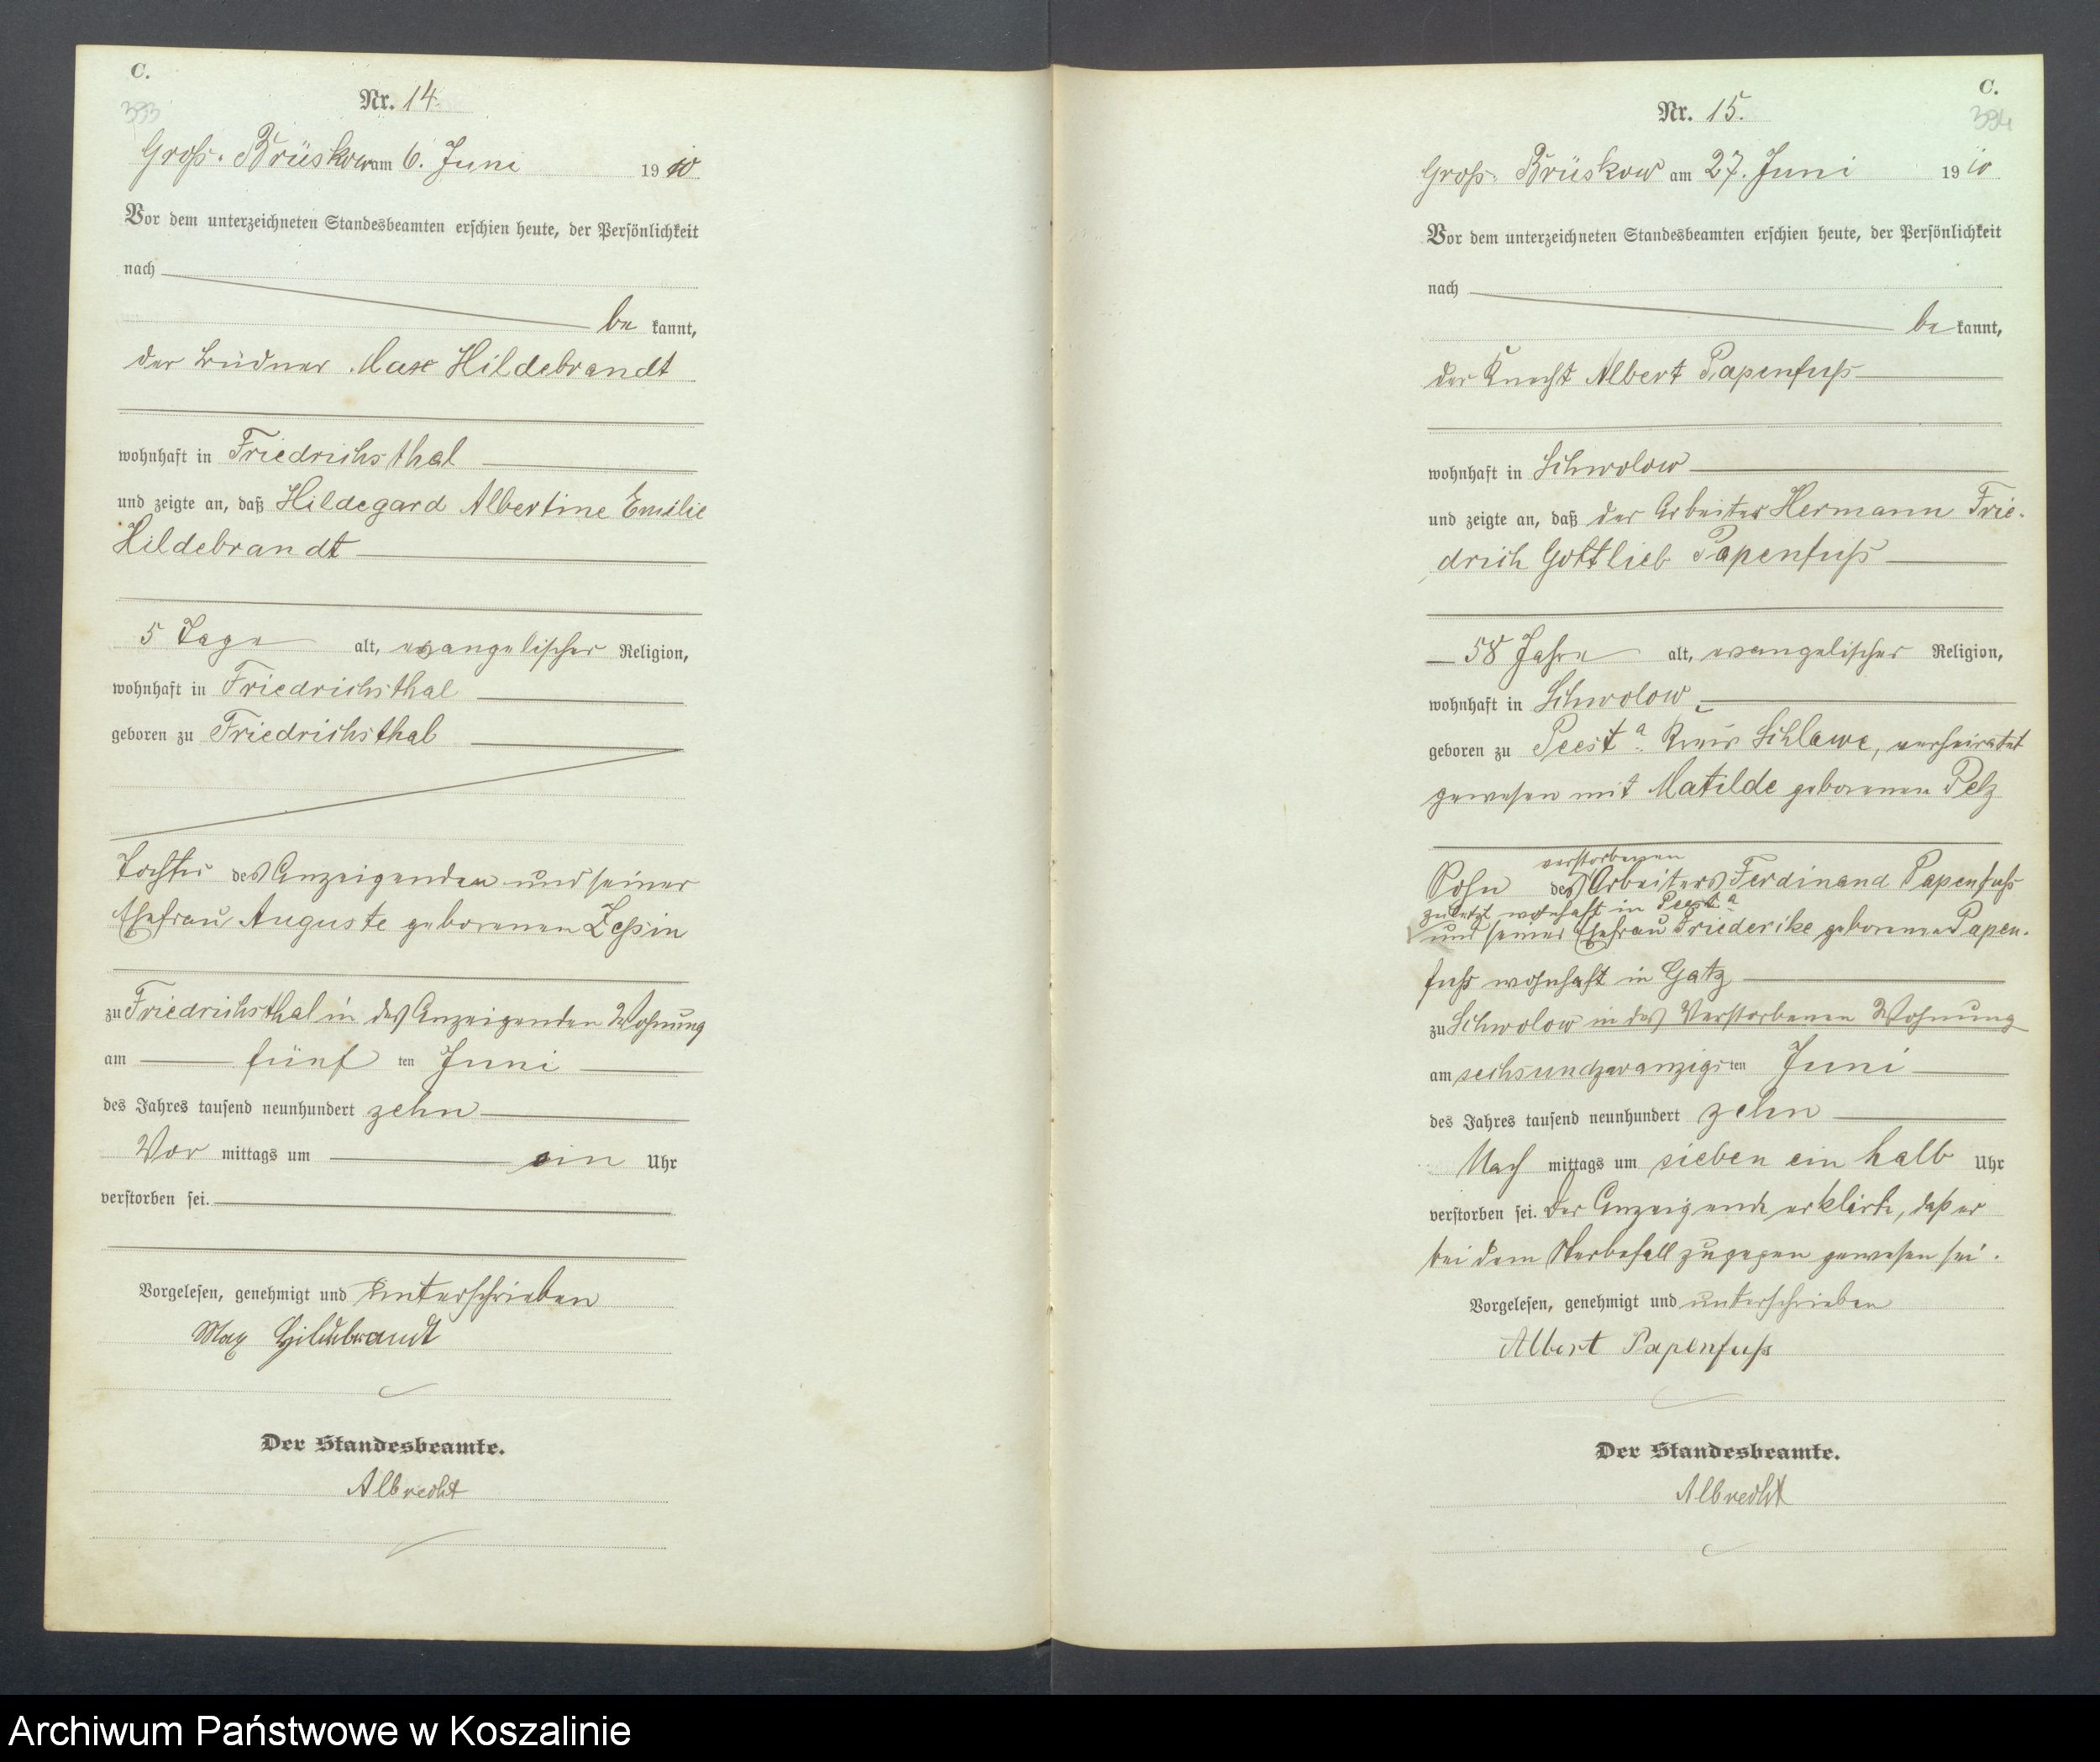 C.
393
Nr. 14.
Groß-Brüskow am 6. Juni 1910
Vor dem unterzeichneten Standesbeamten erschien heute, der Persönlichkeit
nach
be kannt,
der Büdner Max Hildebrandt
wohnhaft in Friedrichsthal
und zeigte an, daß Hildegard Albertine Emilie
Hildebrandt
5 Tage alt, evangelischer Religion,
wohnhaft in Friedrichsthal
geboren zu Friedrichsthal
Tochter des Anzeigenden und seiner
Ehefrau Auguste geborenen Zessin
zu Friedrichsthal in des Anzeigenden Wohnung
am fünf ten Juni
des Jahres tausend neunhundert zehn
Vor mittags um ein Uhr
verstorben sei.
Vorgelesen, genehmigt und unterschrieben
Max Hildebrandt
Der Standesbeamte.
Albrecht
C.
394
Nr. 15.
Groß-Brüskow am 27. Juni 1910
Vor dem unterzeichneten Standesbeamten erschien heute, der Persönlichkeit
nach
be kannt,
der Knecht Albert Papenfuß
wohnhaft in Schwolow
und zeigte an, daß der Arbeiter Hermann Frie-
drich Gottlieb Papenfuß
58 Jahre alt, evangelischer Religion,
wohnhaft in Schwolow
geboren zu Peest a Kreis Schlawe, verheiratet
gewesen mit Matilde geborenen Pelz
verstorbenen
Sohn des Arbeiters Ferdinand Papenfuß
zuletzt wohnhaft in Peest a
und seiner Ehefrau Friederike geborenen Papen-
fuß wohnhaft in Gatz
zu Schwolow in des Verstorbenen Wohnung
am sechsundzwanzigs ten Juni
des Jahres tausend neunhundert zehn
Nach mittags um sieben ein halb Uhr
verstorben sei. Der Anzeigende erklärte, daß er
bei dem Sterbefall zugegen gewesen sei.
Vorgelesen, genehmigt und unterschrieben
Albert Papenfuß
Der Standesbeamte.
Albrecht
Archiwum Państwowe w Koszalinie